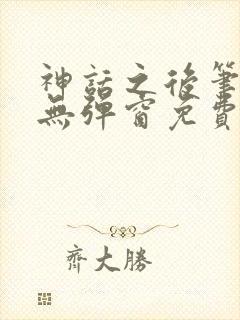 神話之後筆
無彈窗免費
齊大勝